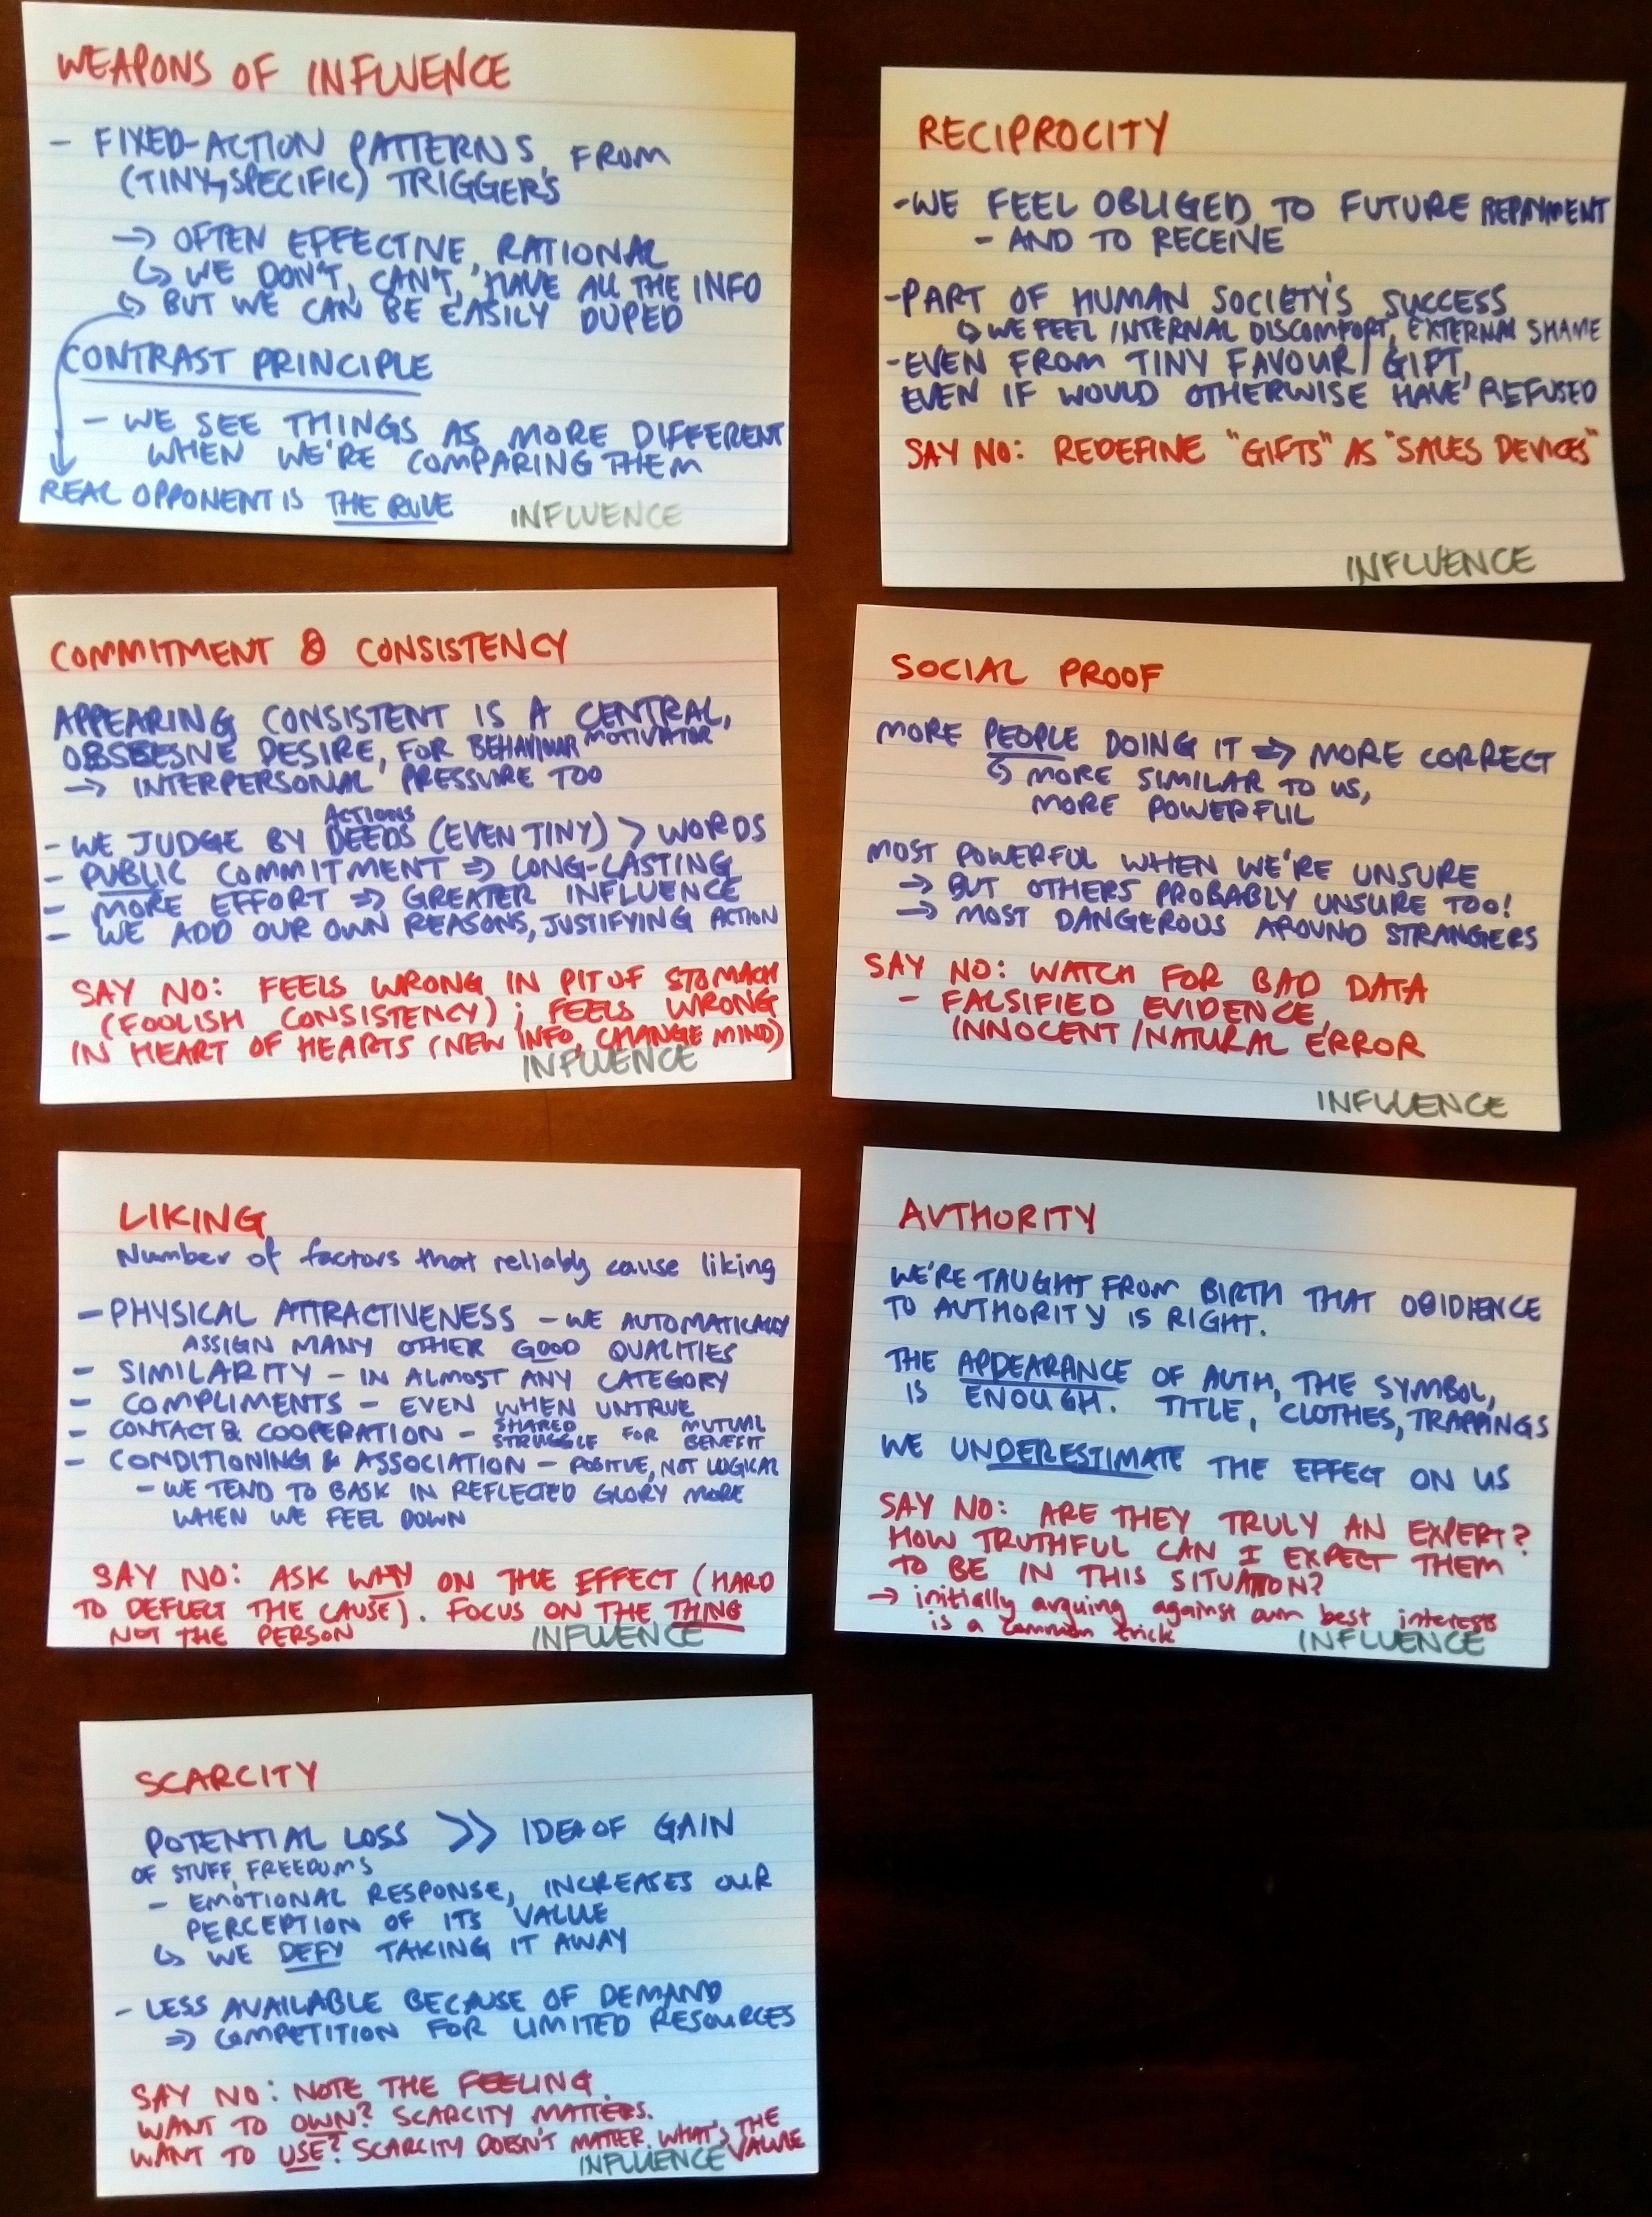 WEAPONS OF INFLUENCE
- FIXED-ACTION PATTERNS, FROM
(TINY, SPECIFIC) TRIGGERS
→ OFTEN EFFECTIVE, RATIONAL
↳ WE DON'T, CAN'T, HAVE ALL THE INFO
↳ BUT WE CAN BE EASILY DUPED
CONTRAST PRINCIPLE
- WE SEE THINGS AS MORE DIFFERENT
WHEN WE'RE COMPARING THEM
REAL OPPONENT IS THE RULE
INFLUENCE
RECIPROCITY
- WE FEEL OBLIGED TO FUTURE REPAYMENT
- AND TO RECEIVE
- PART OF HUMAN SOCIETY'S SUCCESS
↳ WE FEEL INTERNAL DISCOMFORT, EXTERNAL SHAME
- EVEN FROM TINY FAVOUR / GIFT,
EVEN IF WOULD OTHERWISE HAVE REFUSED
SAY NO: REDEFINE "GIFTS" AS "SALES DEVICES"
INFLUENCE
COMMITMENT & CONSISTENCY
APPEARING CONSISTENT IS A CENTRAL,
OBSSESIVE DESIRE, FOR BEHAVIOUR MOTIVATOR
→ INTERPERSONAL PRESSURE TOO
ACTIONS
- WE JUDGE BY DEEDS (EVEN TINY) > WORDS
- PUBLIC COMMITMENT ⇒ LONG-LASTING
- MORE EFFORT ⇒ GREATER INFLUENCE
- WE ADD OUR OWN REASONS, JUSTIFYING ACTION
SAY NO: FEELS WRONG IN PIT OF STOMACH
(FOOLISH CONSISTENCY); FEELS WRONG
IN HEART OF HEARTS (NEW INFO, CHANGE MIND)
INFLUENCE
SOCIAL PROOF
MORE PEOPLE DOING IT ⇒ MORE CORRECT
↳ MORE SIMILAR TO US,
MORE POWERFUL
MOST POWERFUL WHEN WE'RE UNSURE
→ BUT OTHERS PROBABLY UNSURE TOO!
→ MOST DANGEROUS AROUND STRANGERS
SAY NO: WATCH FOR BAD DATA
- FALSIFIED EVIDENCE,
INNOCENT/NATURAL ERROR
INFLUENCE
LIKING
Number of factors that reliably cause liking
- PHYSICAL ATTRACTIVENESS - WE AUTOMATICALLY
ASSIGN MANY OTHER GOOD QUALITIES
- SIMILARITY - IN ALMOST ANY CATEGORY
- COMPLIMENTS - EVEN WHEN UNTRUE
- CONTACT & COOPERATION - SHARED STRUGGLE FOR MUTUAL BENEFIT
- CONDITIONING & ASSOCIATION - POSITIVE, NOT LOGICAL
- WE TEND TO BASK IN REFLECTED GLORY MORE
WHEN WE FEEL DOWN
SAY NO: ASK WHY ON THE EFFECT (HARD
TO DEFLECT THE CAUSE). FOCUS ON THE THING
NOT THE PERSON
INFLUENCE
AUTHORITY
WE'RE TAUGHT FROM BIRTH THAT OBIDIENCE
TO AUTHORITY IS RIGHT.
THE APPEARANCE OF AUTH, THE SYMBOL,
IS ENOUGH. TITLE, CLOTHES, TRAPPINGS
WE UNDERESTIMATE THE EFFECT ON US
SAY NO: ARE THEY TRULY AN EXPERT?
HOW TRUTHFUL CAN I EXPECT THEM
TO BE IN THIS SITUATION?
→ initially arguing against own best interests
is a common trick
INFLUENCE
SCARCITY
POTENTIAL LOSS >> IDEA OF GAIN
OF STUFF, FREEDOMS
- EMOTIONAL RESPONSE, INCREASES OUR
PERCEPTION OF ITS VALUE
↳ WE DEFY TAKING IT AWAY
- LESS AVAILABLE BECAUSE OF DEMAND
⇒ COMPETITION FOR LIMITED RESOURCES
SAY NO: NOTE THE FEELING.
WANT TO OWN? SCARCITY MATTERS.
WANT TO USE? SCARCITY DOESN'T MATTER. WHAT'S THE
VALUE
INFLUENCE